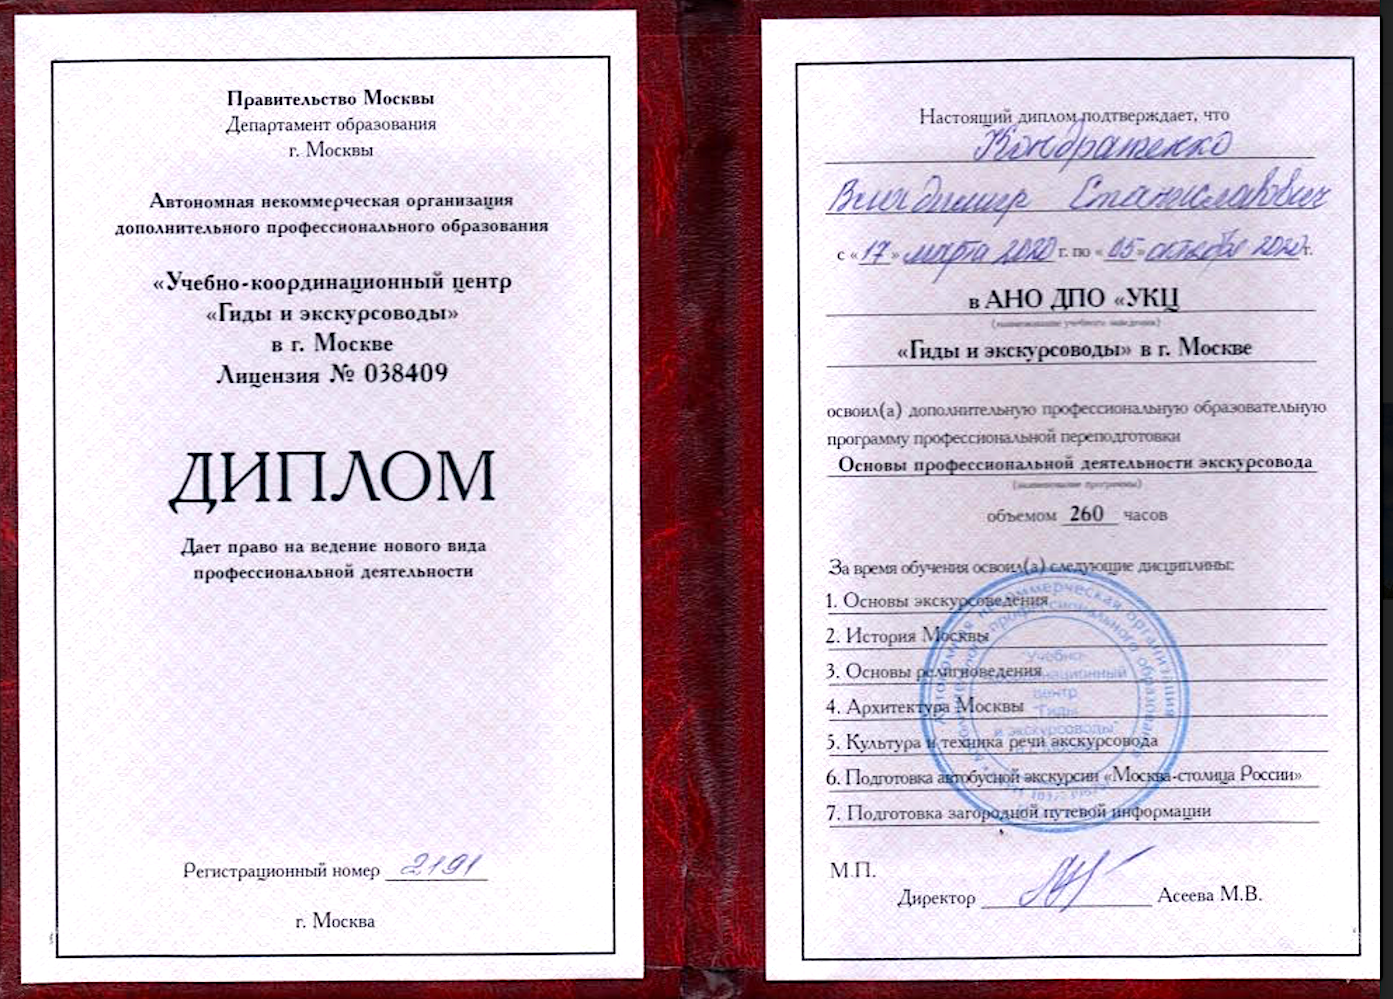 Правительство Москвы
Департамент образования
г. Москвы
Автономная некоммерческая организация
дополнительного профессионального образования
«Учебно-координационный центр
«Гиды и экскурсоводы»
в г. Москве
Лицензия № 038409
ДИПЛОМ
Дает право на ведение нового вида
профессиональной деятельности
Регистрационный номер 2191
г. Москва
Настоящий диплом подтверждает, что
Кондратенко
Владимир Станиславович
с «17» марта 2020 г. по «05» октября 2020 г.
в АНО ДПО «УКЦ
(наименование учебного заведения)
«Гиды и экскурсоводы» в г. Москве
освоил(а) дополнительную профессиональную образовательную
программу профессиональной переподготовки
Основы профессиональной деятельности экскурсовода
(наименование программы)
объемом 260 часов
За время обучения освоил(а) следующие дисциплины:
1. Основы экскурсоведения
2. История Москвы
3. Основы религиоведения
4. Архитектура Москвы
5. Культура и техника речи экскурсовода
6. Подготовка автобусной экскурсии «Москва-столица России»
7. Подготовка загородной путевой информации
Автономная некоммерческая организация
профессионального образования
"Учебно-
координационный
центр
"Гиды
и экскурсоводы"
М.П.
Директор Асеева М.В.